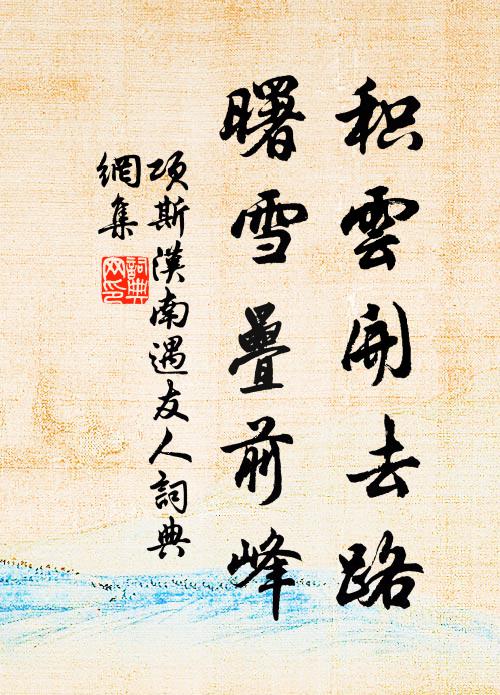 积雲開去路
曙雪疊前峰
项斯漢南遇友人詞典
網集
詞典
网印